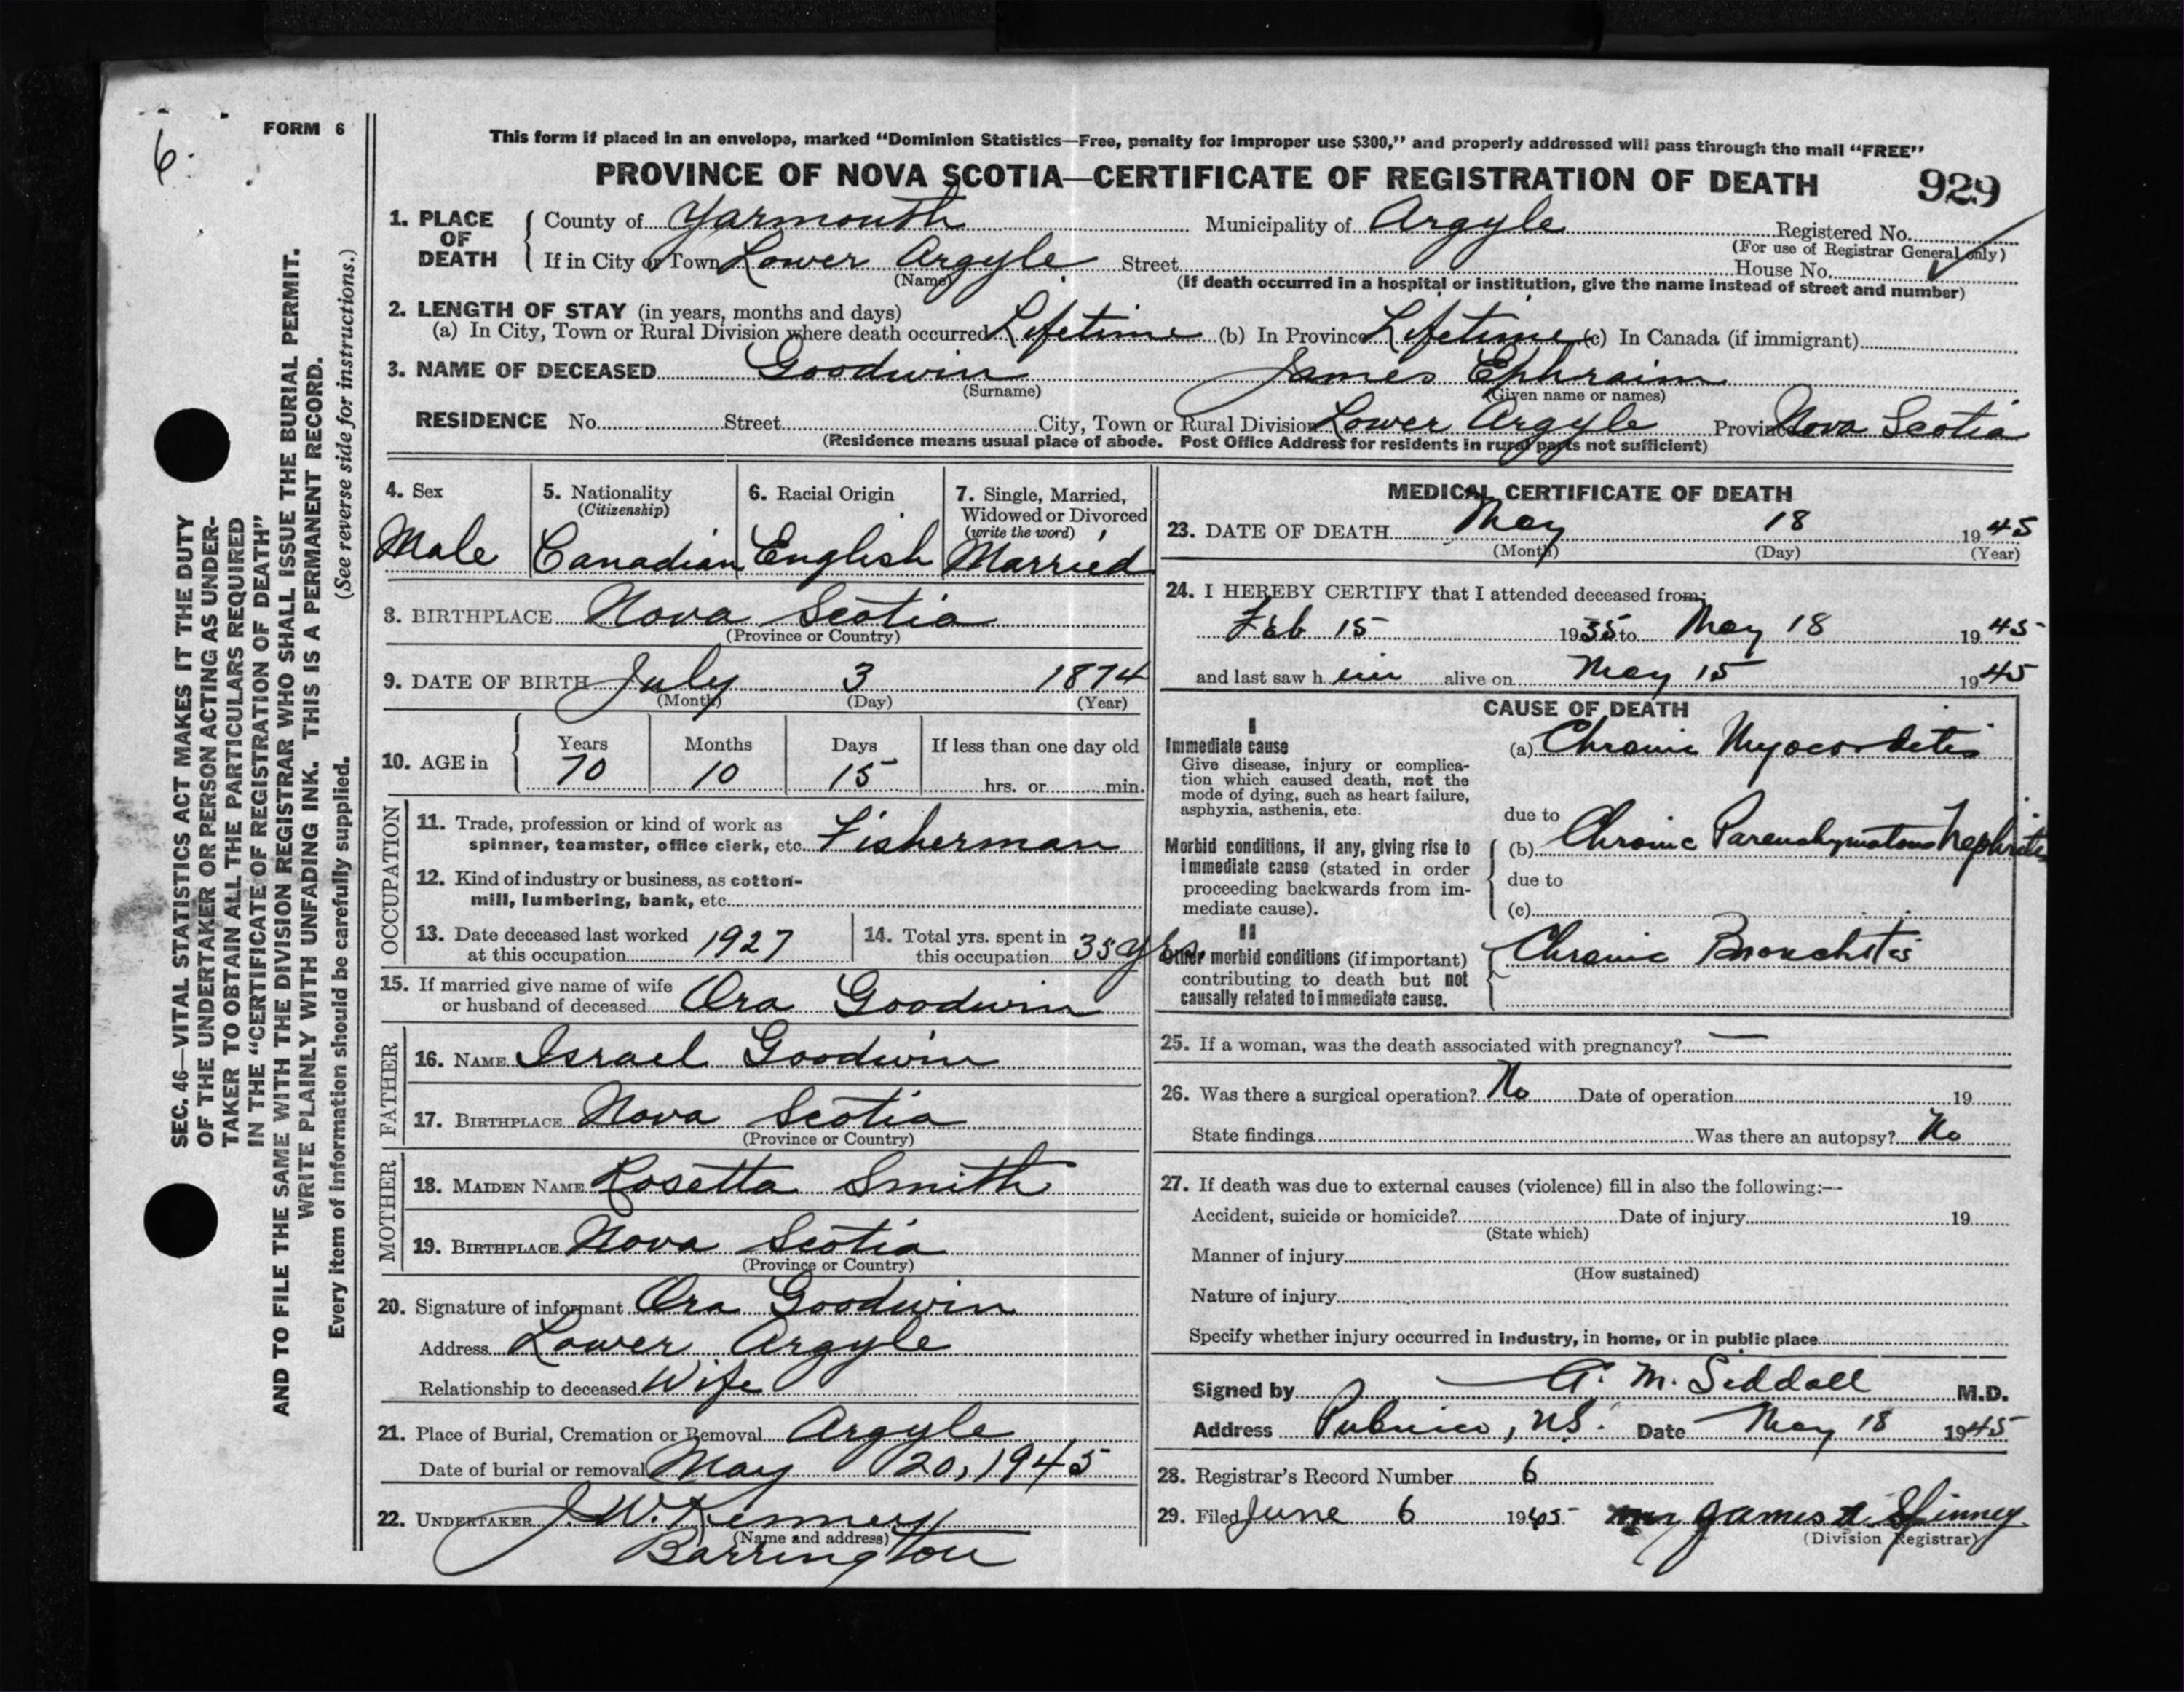 FORM 6
6.
This form if placed in an envelope, marked “Dominion Statistics—Free, penalty for improper use $300,” and properly addressed will pass through the mail “FREE”
PROVINCE OF NOVA SCOTIA—CERTIFICATE OF REGISTRATION OF DEATH 929
1. PLACE OF DEATH County of Yarmouth Municipality of Argyle Registered No.
(For use of Registrar General only)
If in City or Town Lower Argyle Street House No.
(Name) (If death occurred in a hospital or institution, give the name instead of street and number)
2. LENGTH OF STAY (in years, months and days)
(a) In City, Town or Rural Division where death occurred Lifetime (b) In Province Lifetime (c) In Canada (if immigrant)
3. NAME OF DECEASED Goodwin James Ephraim
(Surname) (Given name or names)
RESIDENCE No. Street City, Town or Rural Division Lower Argyle Province Nova Scotia
(Residence means usual place of abode. Post Office Address for residents in rural parts not sufficient)
4. Sex Male
5. Nationality (Citizenship) Canadian
6. Racial Origin English
7. Single, Married, Widowed or Divorced (write the word) Married
8. BIRTHPLACE Nova Scotia
(Province or Country)
9. DATE OF BIRTH July 3 1874
(Month) (Day) (Year)
10. AGE in Years Months Days If less than one day old
70 10 15 hrs. or min.
OCCUPATION
11. Trade, profession or kind of work as
spinner, teamster, office clerk, etc. Fisherman
12. Kind of industry or business, as cotton-
mill, lumbering, bank, etc.
13. Date deceased last worked
at this occupation 1927
14. Total yrs. spent in
this occupation 35 yrs
15. If married give name of wife
or husband of deceased Ora Goodwin
FATHER
16. NAME Israel Goodwin
17. BIRTHPLACE Nova Scotia
(Province or Country)
MOTHER
18. MAIDEN NAME Rosetta Smith
19. BIRTHPLACE Nova Scotia
(Province or Country)
20. Signature of informant Ora Goodwin
Address Lower Argyle
Relationship to deceased Wife
21. Place of Burial, Cremation or Removal Argyle
Date of burial or removal May 20, 1945
22. UNDERTAKER J. W. Kenney
(Name and address)
Barrington
MEDICAL CERTIFICATE OF DEATH
23. DATE OF DEATH May 18 1945
(Month) (Day) (Year)
24. I HEREBY CERTIFY that I attended deceased from:
Feb 15 1935 to May 18 1945
and last saw h im alive on May 15 1945
CAUSE OF DEATH
I
Immediate cause
Give disease, injury or complica-
tion which caused death, not the
mode of dying, such as heart failure,
asphyxia, asthenia, etc.
(a) Chronic Myocorditis
due to
Morbid conditions, if any, giving rise to
immediate cause (stated in order
proceeding backwards from im-
mediate cause).
(b) Chronic Parenchymatous Nephritis
due to
(c)
II
Other morbid conditions (if important)
contributing to death but not
causally related to immediate cause.
Chronic Bronchitis
25. If a woman, was the death associated with pregnancy? —
26. Was there a surgical operation? No Date of operation 19
State findings Was there an autopsy? No
27. If death was due to external causes (violence) fill in also the following:—
Accident, suicide or homicide? Date of injury 19
(State which)
Manner of injury
(How sustained)
Nature of injury
Specify whether injury occurred in industry, in home, or in public place
Signed by A. M. Siddall M.D.
Address Pubnico, N.S. Date May 18 1945
28. Registrar's Record Number 6
29. Filed June 6 1945 James Spinney
(Division Registrar)
SEC. 46—VITAL STATISTICS ACT MAKES IT THE DUTY
OF THE UNDERTAKER OR PERSON ACTING AS UNDER-
TAKER TO OBTAIN ALL THE PARTICULARS REQUIRED
IN THE “CERTIFICATE OF REGISTRATION OF DEATH”
AND TO FILE THE SAME WITH THE DIVISION REGISTRAR WHO SHALL ISSUE THE BURIAL PERMIT.
WRITE PLAINLY WITH UNFADING INK. THIS IS A PERMANENT RECORD.
Every item of information should be carefully supplied. (See reverse side for instructions.)